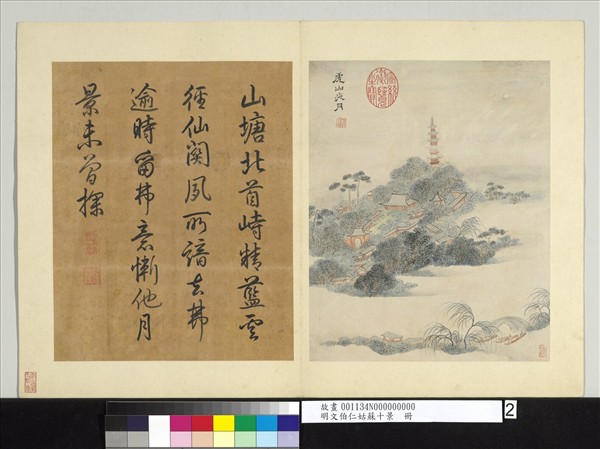 山塘北首峙精藍雲
徑仙關夙所諳去弗
逾時留弗意慚他月
景未曾探
虎山夜月
故畫 001134N000000000
明文伯仁姑蘇十景 冊
2